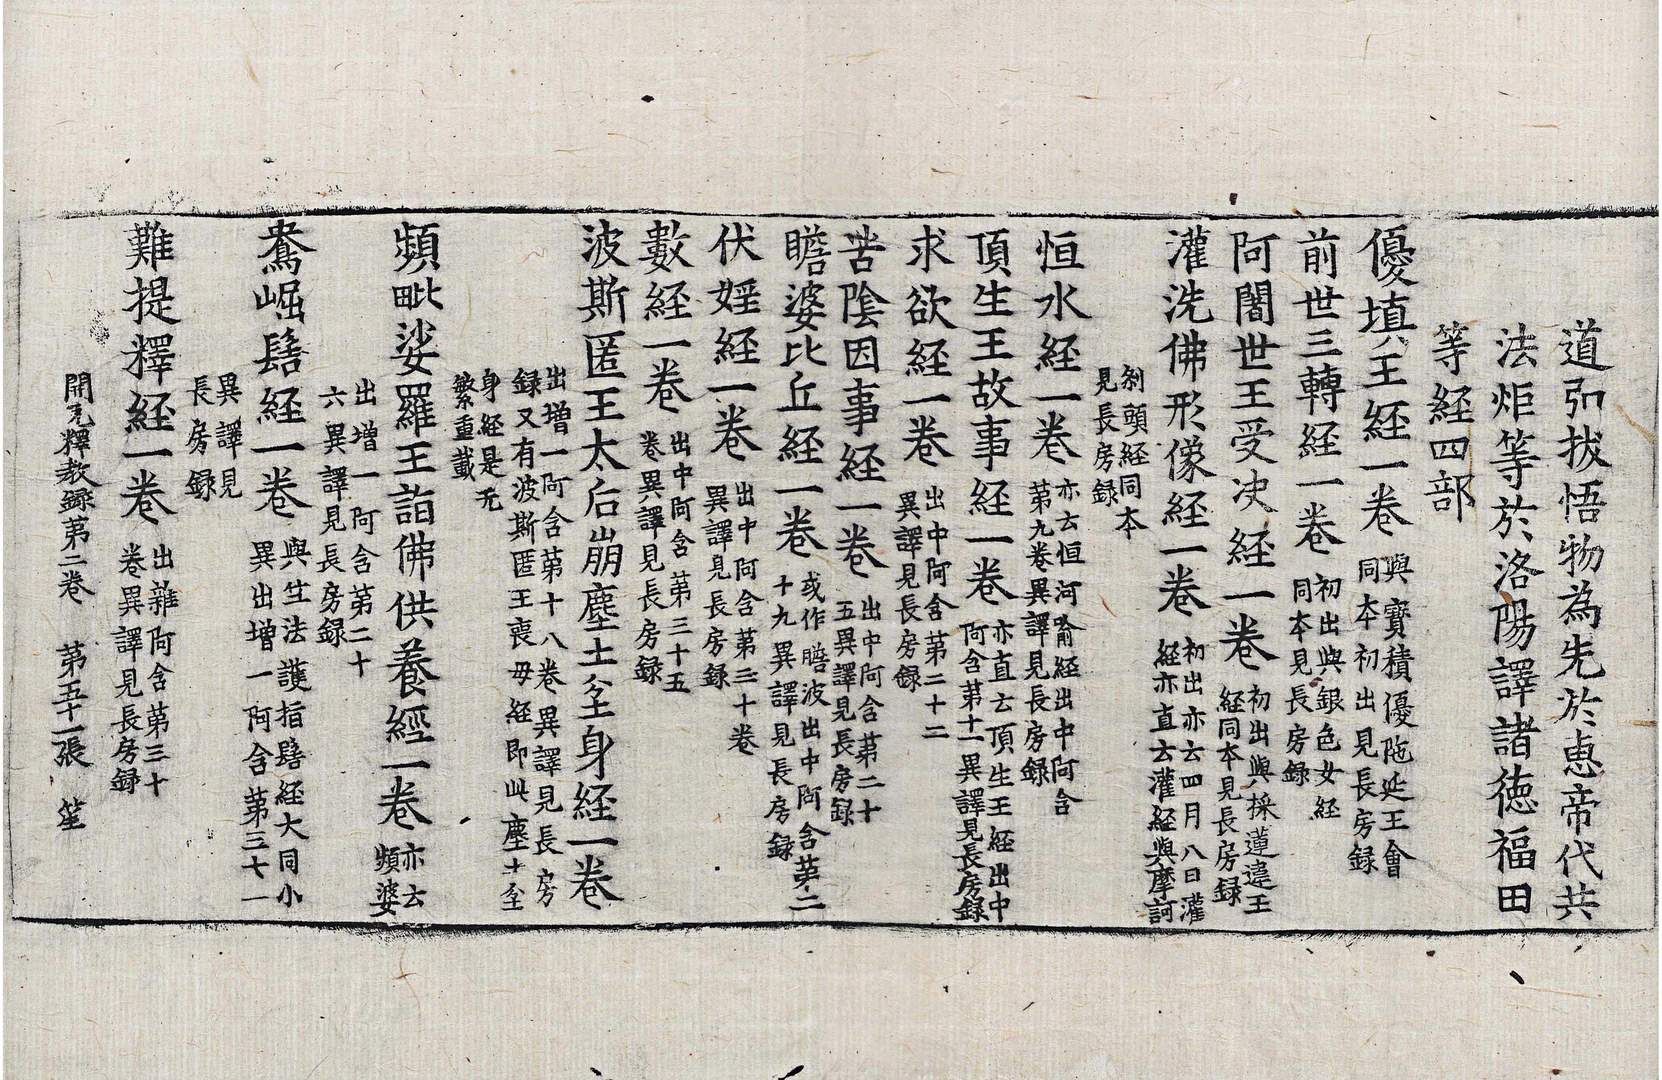 道弘拔悟物為先於惠帝代共
法炬等於洛陽譯諸德福田
等經四部
優填王經一卷 與寶積優陁延王會
同本初出見長房錄
前世三轉經一卷 初出與銀色女經
同本見長房錄
阿闍世王受決經一卷 初出與採蓮違王
經同本見長房錄
灌洗佛形像經一卷 初出亦云四月八日灌
經亦直云灌經與摩訶
剎頭經同本
見長房錄
恒水經一卷 亦云恒河喻經出中阿含
第九卷異譯見長房錄
頂生王故事經一卷 亦直云頂生王經出中
阿含第十一異譯見長房錄
求欲經一卷 出中阿含第二十二
異譯見長房錄
苦陰因事經一卷 出中阿含第二十
五異譯見長房錄
瞻婆比丘經一卷 或作瞻波出中阿含第二
十九異譯見長房錄
伏婬經一卷 出中阿含第三十卷
異譯見長房錄
數經一卷 出中阿含第三十五
卷異譯見長房錄
波斯匿王太后崩塵土坌身經一卷
出增一阿含第十八卷異譯見長房
錄又有波斯匿王喪母經即此塵土坌
身經是无
繁重載
頻毗娑羅王詣佛供養經一卷 亦云
頻婆
出增一阿含第二十
六異譯見長房錄
鴦崛髻經一卷 與竺法護指髻經大同小
異出增一阿含第三十一
異譯見
長房錄
難提釋經一卷 出雜阿含第三十
卷異譯見長房錄
開元釋教錄第二卷 第五十一張 笙